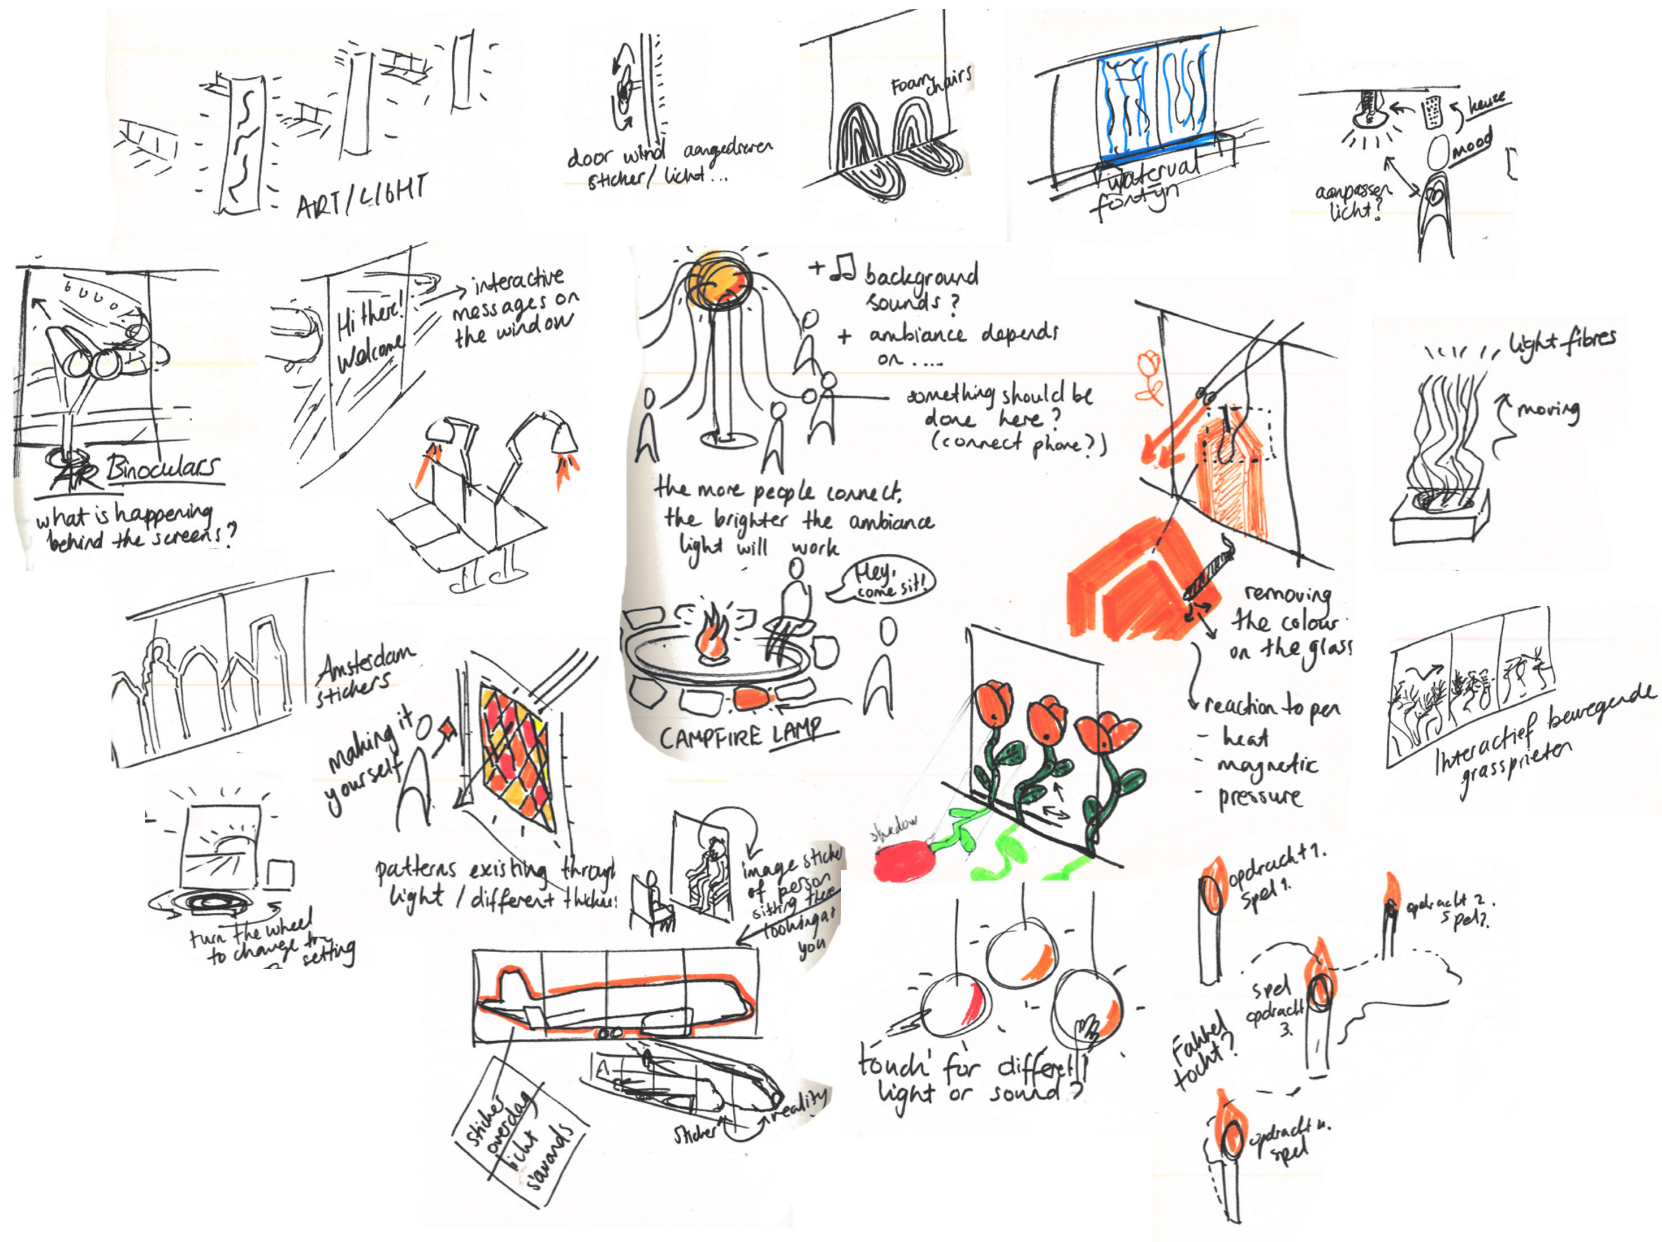 ART/LIGHT
door wind aangedreven
sticker/licht...
Foam
chairs
waterval
fontijn
keuze
mood
aanpassen
licht?
AR Binoculars
what is happening
behind the screens?
Hi there!
Welcome
interactive
messages on
the window
+ ♫ background
sounds?
+ ambiance depends
on ....
something should be
done here?
(connect phone?)
the more people connect,
the brighter the ambiance
light will work
Hey,
come sit!
CAMPFIRE LAMP
removing
the colour
on the glass
reaction to pen
- heat
- magnetic
- pressure
light fibres
moving
Amsterdam
stickers
making it
yourself
patterns existing through
light / different
Interactief bewegende
grassprieten
turn the wheel
to change the
setting
image sticker
of person
sitting there
looking at
you
shadow
sticker
overdag
licht
s'avonds
sticker
reality
'touch' for different
light or sound?
opdracht 1.
spel 1.
opdracht 2.
spel 2.
spel
opdracht
3.
Fakkel
tocht?
opdracht 4.
spel